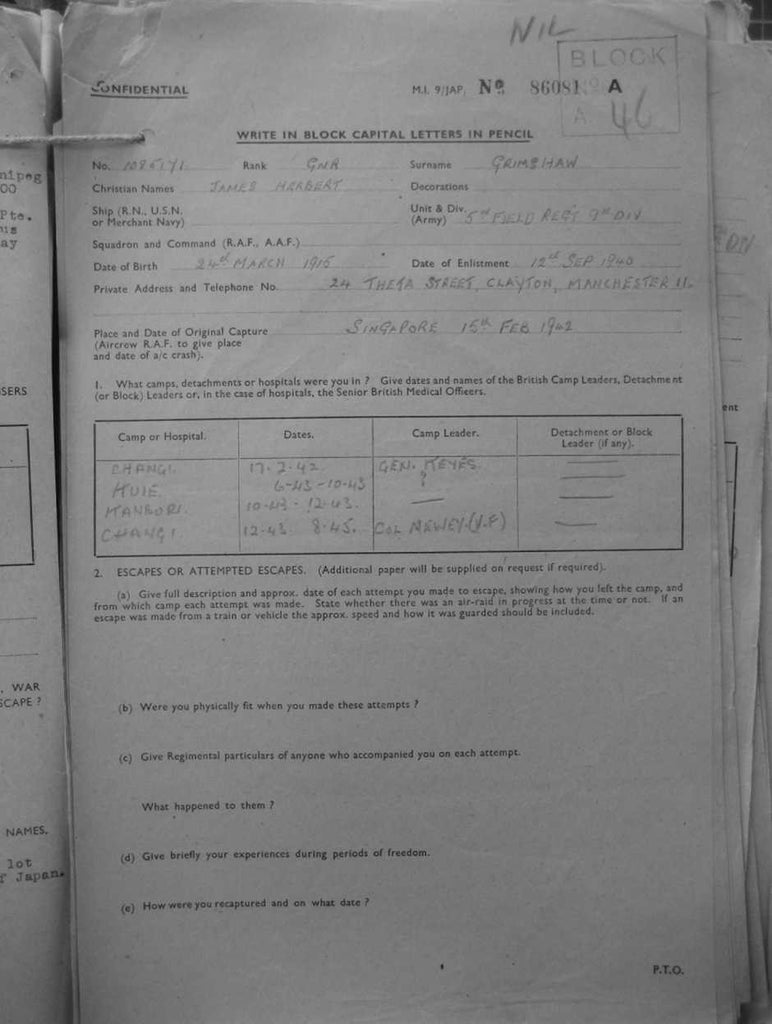 NIL
BLOCK
CONFIDENTIAL M.I. 9/JAP. No 86081 A
A 46
WRITE IN BLOCK CAPITAL LETTERS IN PENCIL
No. Rank GNR Surname GRIMSHAW
Christian Names JAMES HERBERT Decorations
Ship (R.N., U.S.N. Unit & Div.
or Merchant Navy) (Army) 5TH FIELD REGT 9TH DIV
Squadron and Command (R.A.F., A.A.F.)
Date of Birth 24th MARCH 1916 Date of Enlistment 12th SEP 1940
Private Address and Telephone No. 24 THETA STREET, CLAYTON, MANCHESTER 11.
Place and Date of Original Capture SINGAPORE 15th FEB 1942
(Aircrew R.A.F. to give place
and date of a/c crash).
1. What camps, detachments or hospitals were you in ? Give dates and names of the British Camp Leaders, Detachment
(or Block) Leaders or, in the case of hospitals, the Senior British Medical Officers.
Camp or Hospital. Dates. Camp Leader. Detachment or Block
Leader (if any).
CHANGI. 17.2.42 GEN. KEYES
HUIE. 6-43-10-43 ?
KANBORI. 10-43 - 12.43. —
CHANGI 12-43. 8.45. COL NEWEY (V.F) —
2. ESCAPES OR ATTEMPTED ESCAPES. (Additional paper will be supplied on request if required).
(a) Give full description and approx. date of each attempt you made to escape, showing how you left the camp, and
from which camp each attempt was made. State whether there was an air-raid in progress at the time or not. If an
escape was made from a train or vehicle the approx. speed and how it was guarded should be included.
(b) Were you physically fit when you made these attempts ?
(c) Give Regimental particulars of anyone who accompanied you on each attempt.
What happened to them ?
(d) Give briefly your experiences during periods of freedom.
(e) How were you recaptured and on what date ?
P.T.O.
nipeg
00
Pte.
is
ay
SERS
, WAR
SCAPE ?
NAMES.
lot
f Japan.
DIV
ent